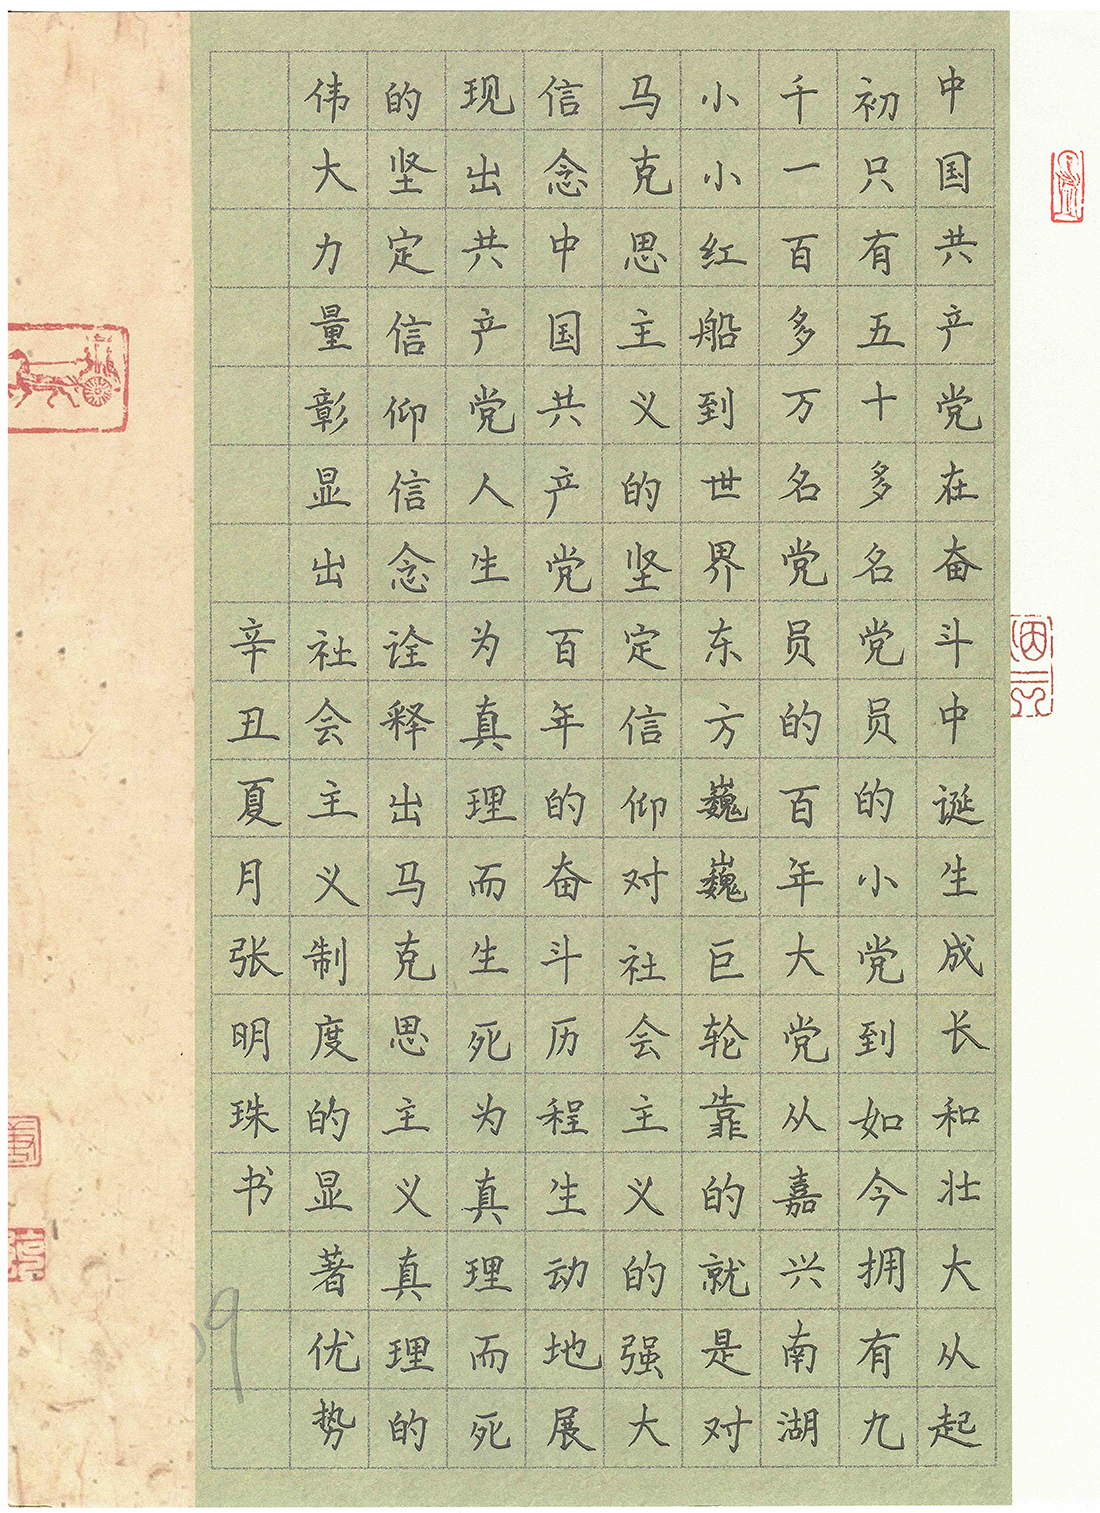 中国共产党在奋斗中诞生成长和壮大从起
初只有五十多名党员的小党到如今拥有九
千一百多万名党员的百年大党从嘉兴南湖
小小红船到世界东方巍巍巨轮靠的就是对
马克思主义的坚定信仰对社会主义的强大
信念中国共产党百年的奋斗历程生动地展
现出共产党人生为真理而生死为真理而死
的坚定信仰信念诠释出马克思主义真理的
伟大力量彰显出社会主义制度的显著优势
辛丑夏月张明珠书